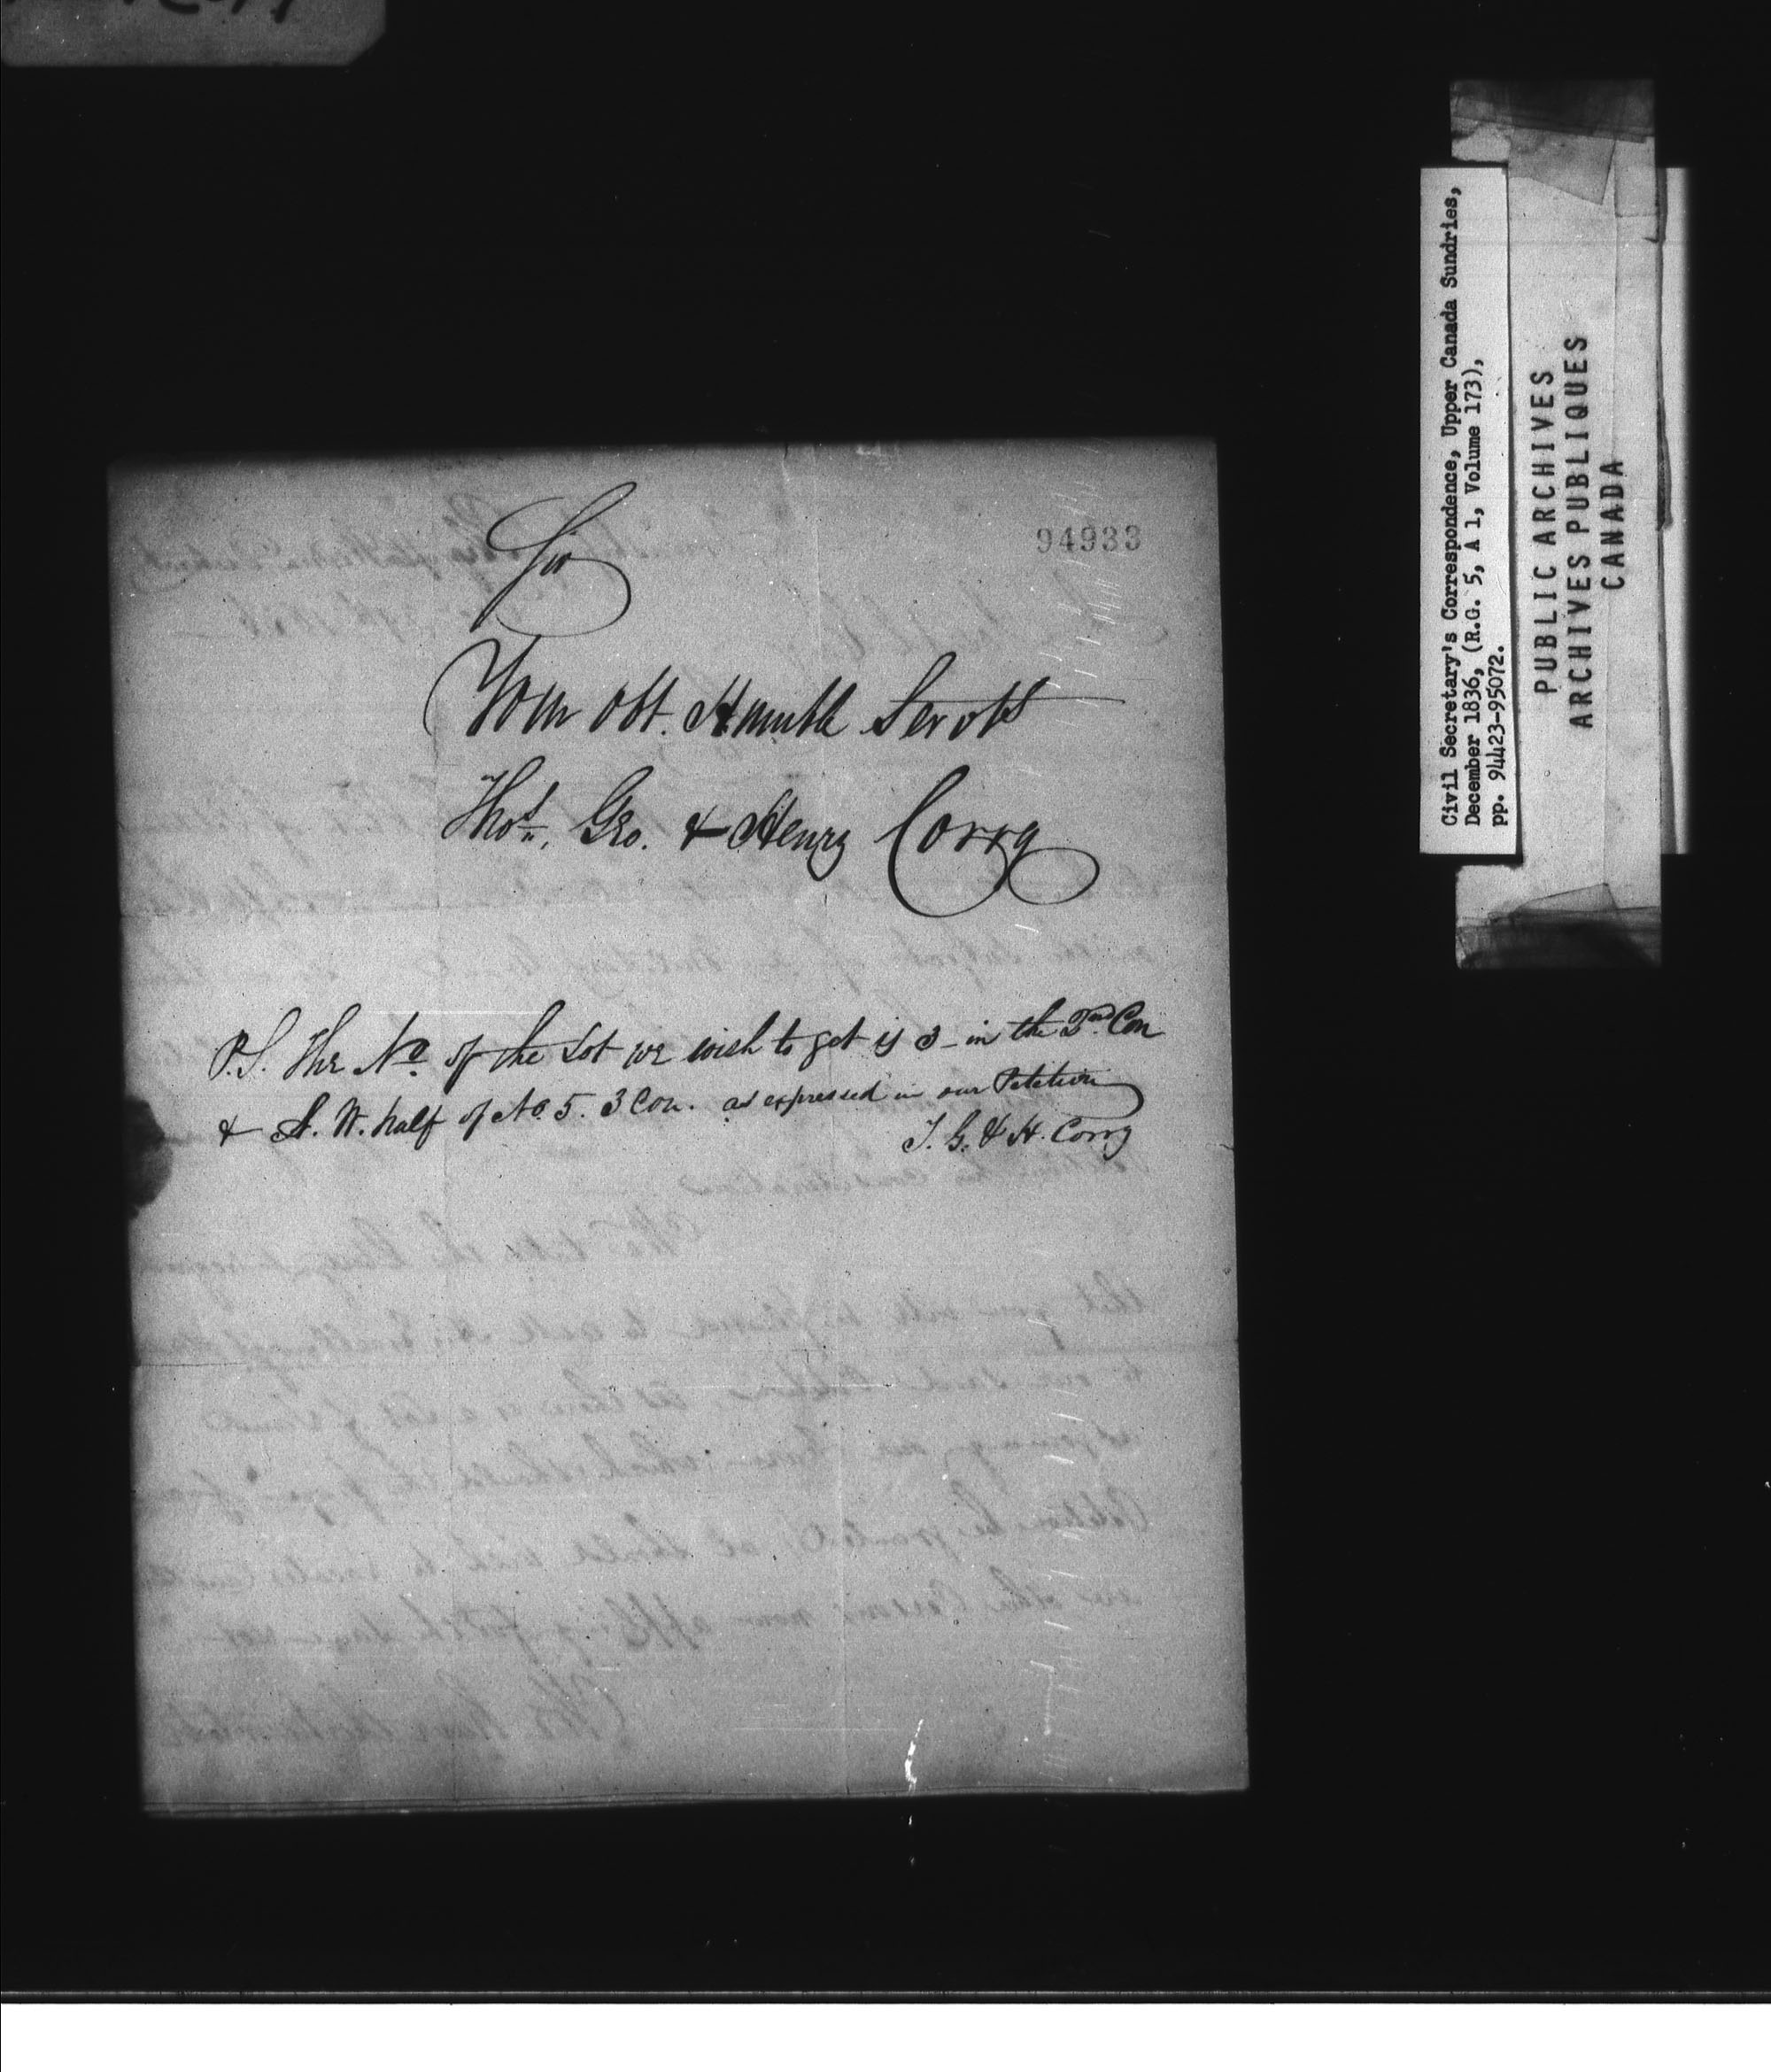 94933
Sir
Your Obt. Humble Servts
Thos. Geo. & Henry Corry
P.S. The No. of the Lot we wish to get is 3 - in the 2nd Con
& S. W. half of No. 5. 3 Con. as expressed in our Petition
T. G. & H. Corry
Civil Secretary's Correspondence, Upper Canada Sundries,
December 1836, (R.G. 5, A 1, Volume 173),
pp. 94423-95072.
PUBLIC ARCHIVES
ARCHIVES PUBLIQUES
CANADA